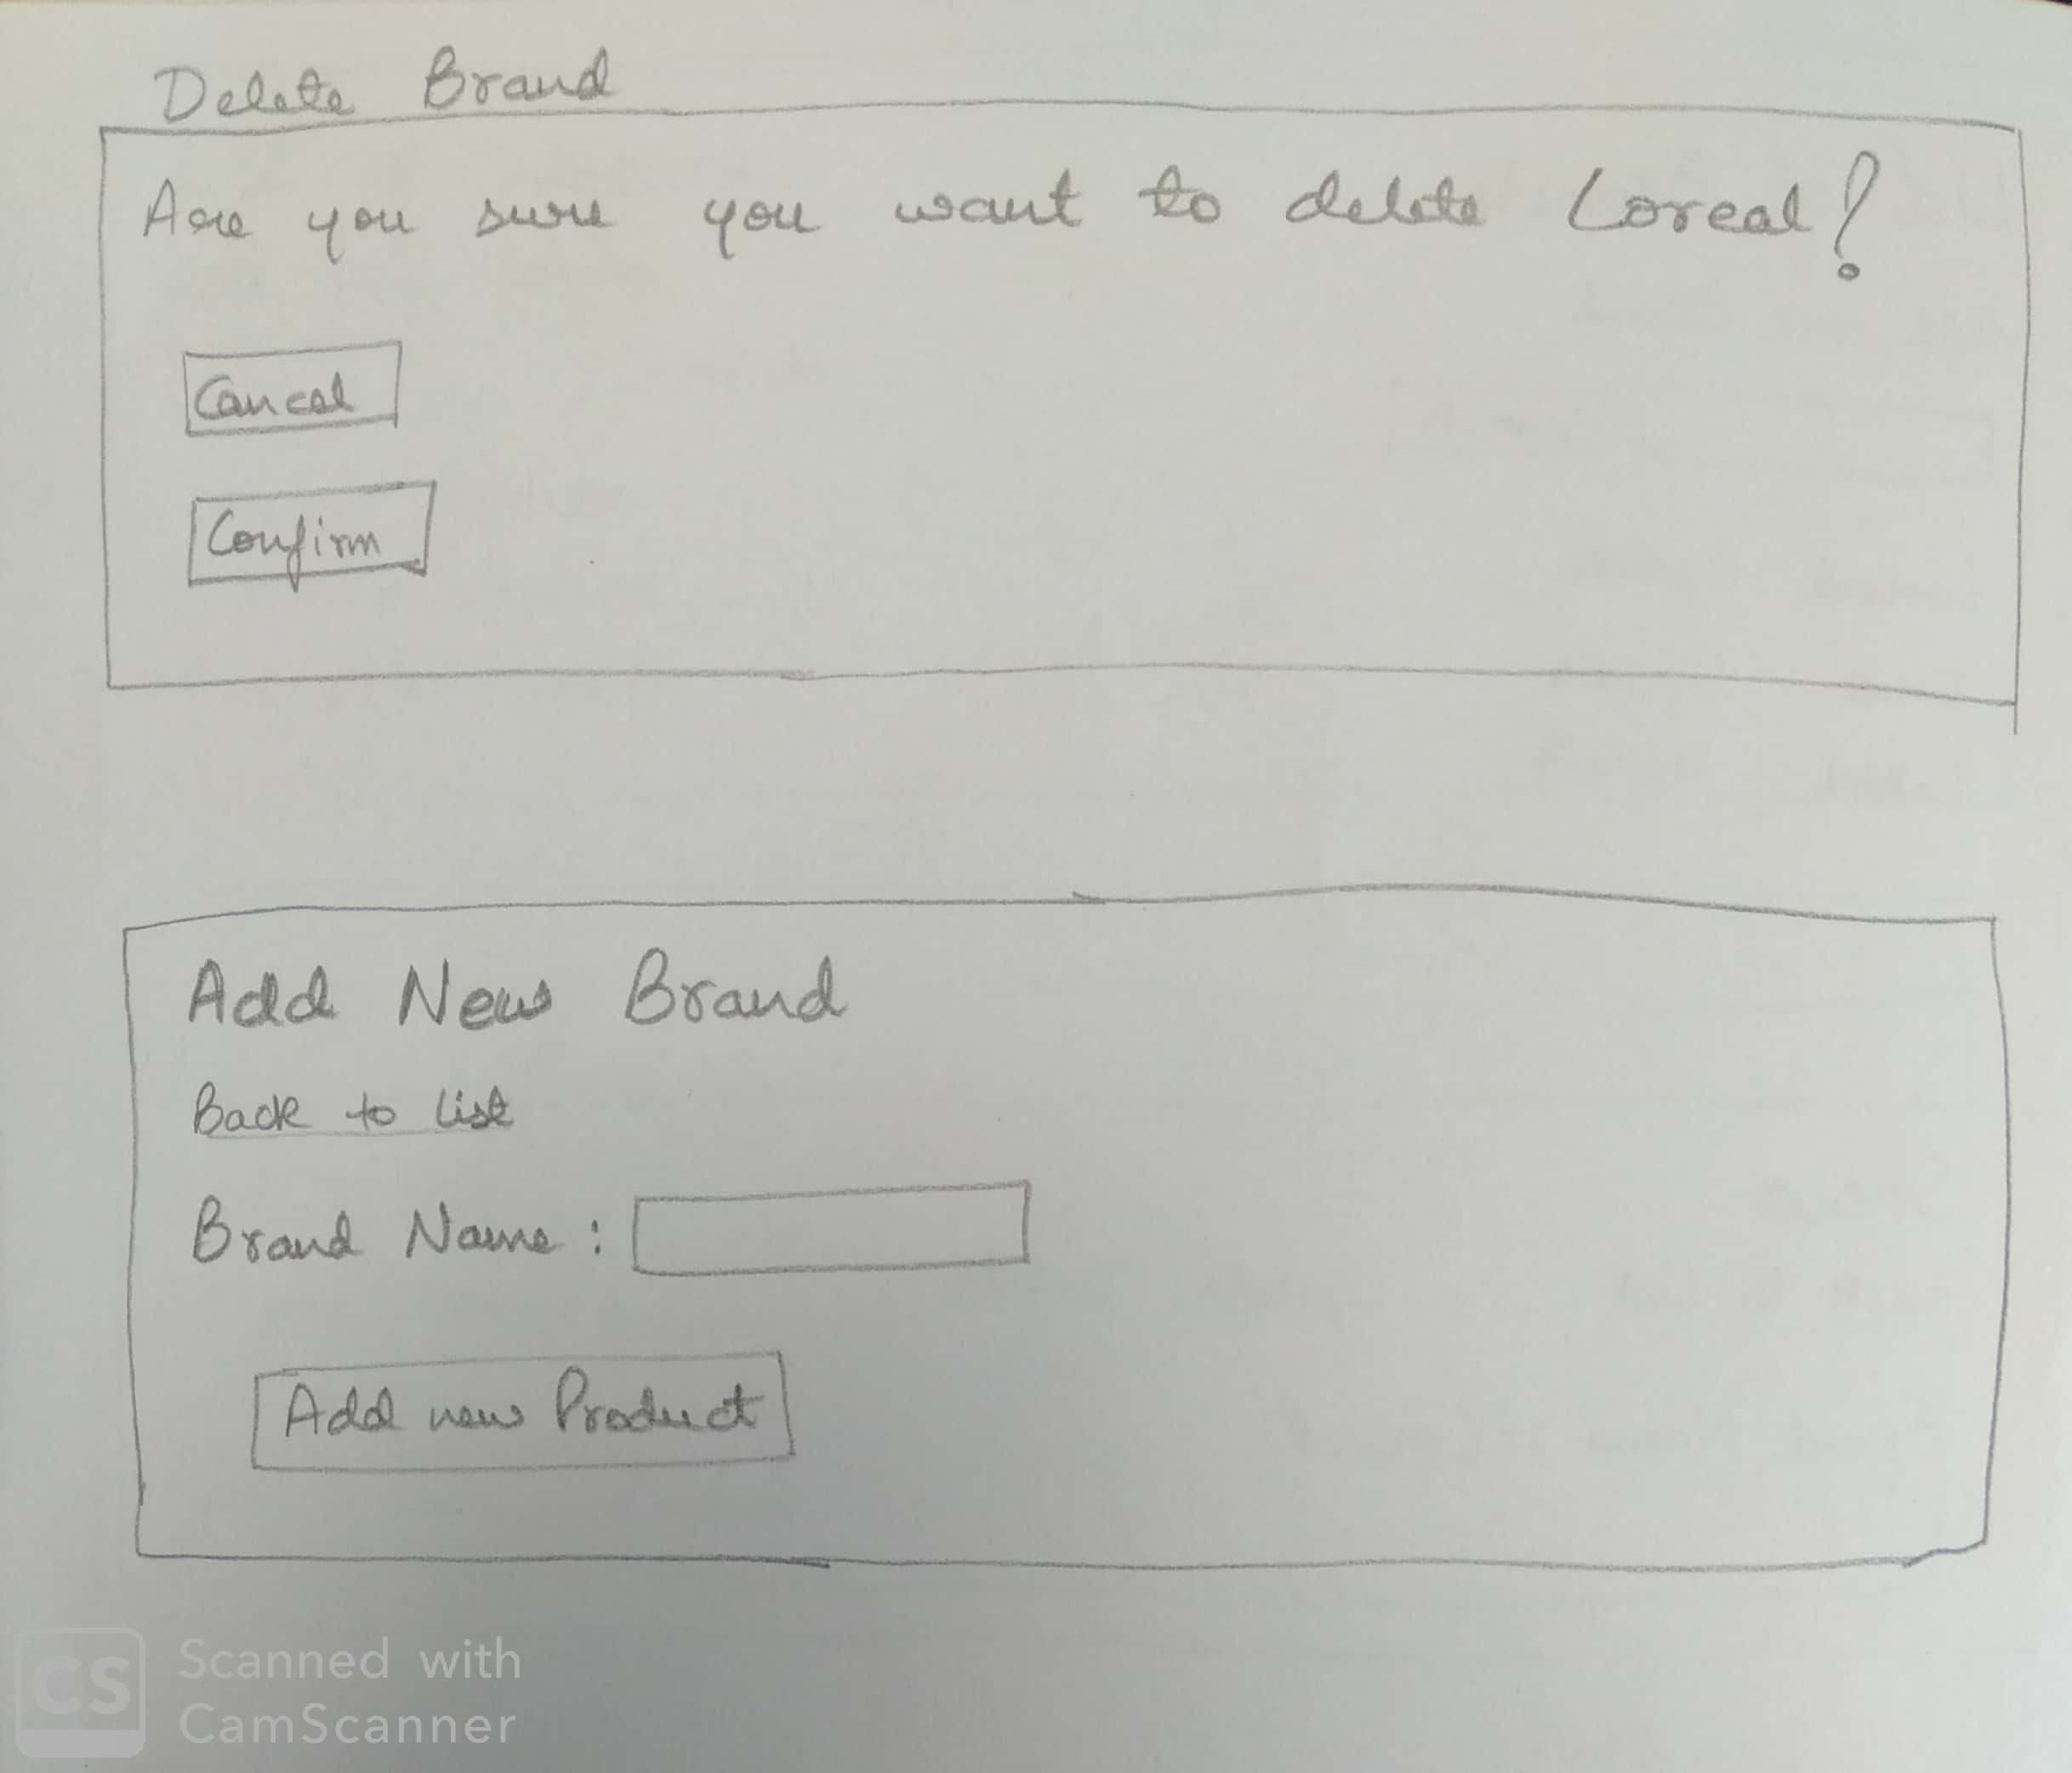 Delete Brand
Are you sure you want to delete Loreal?
Cancel
Confirm
Add New Brand
Back to List
Brand Name :
Add new Product
CS
Scanned with
CamScanner